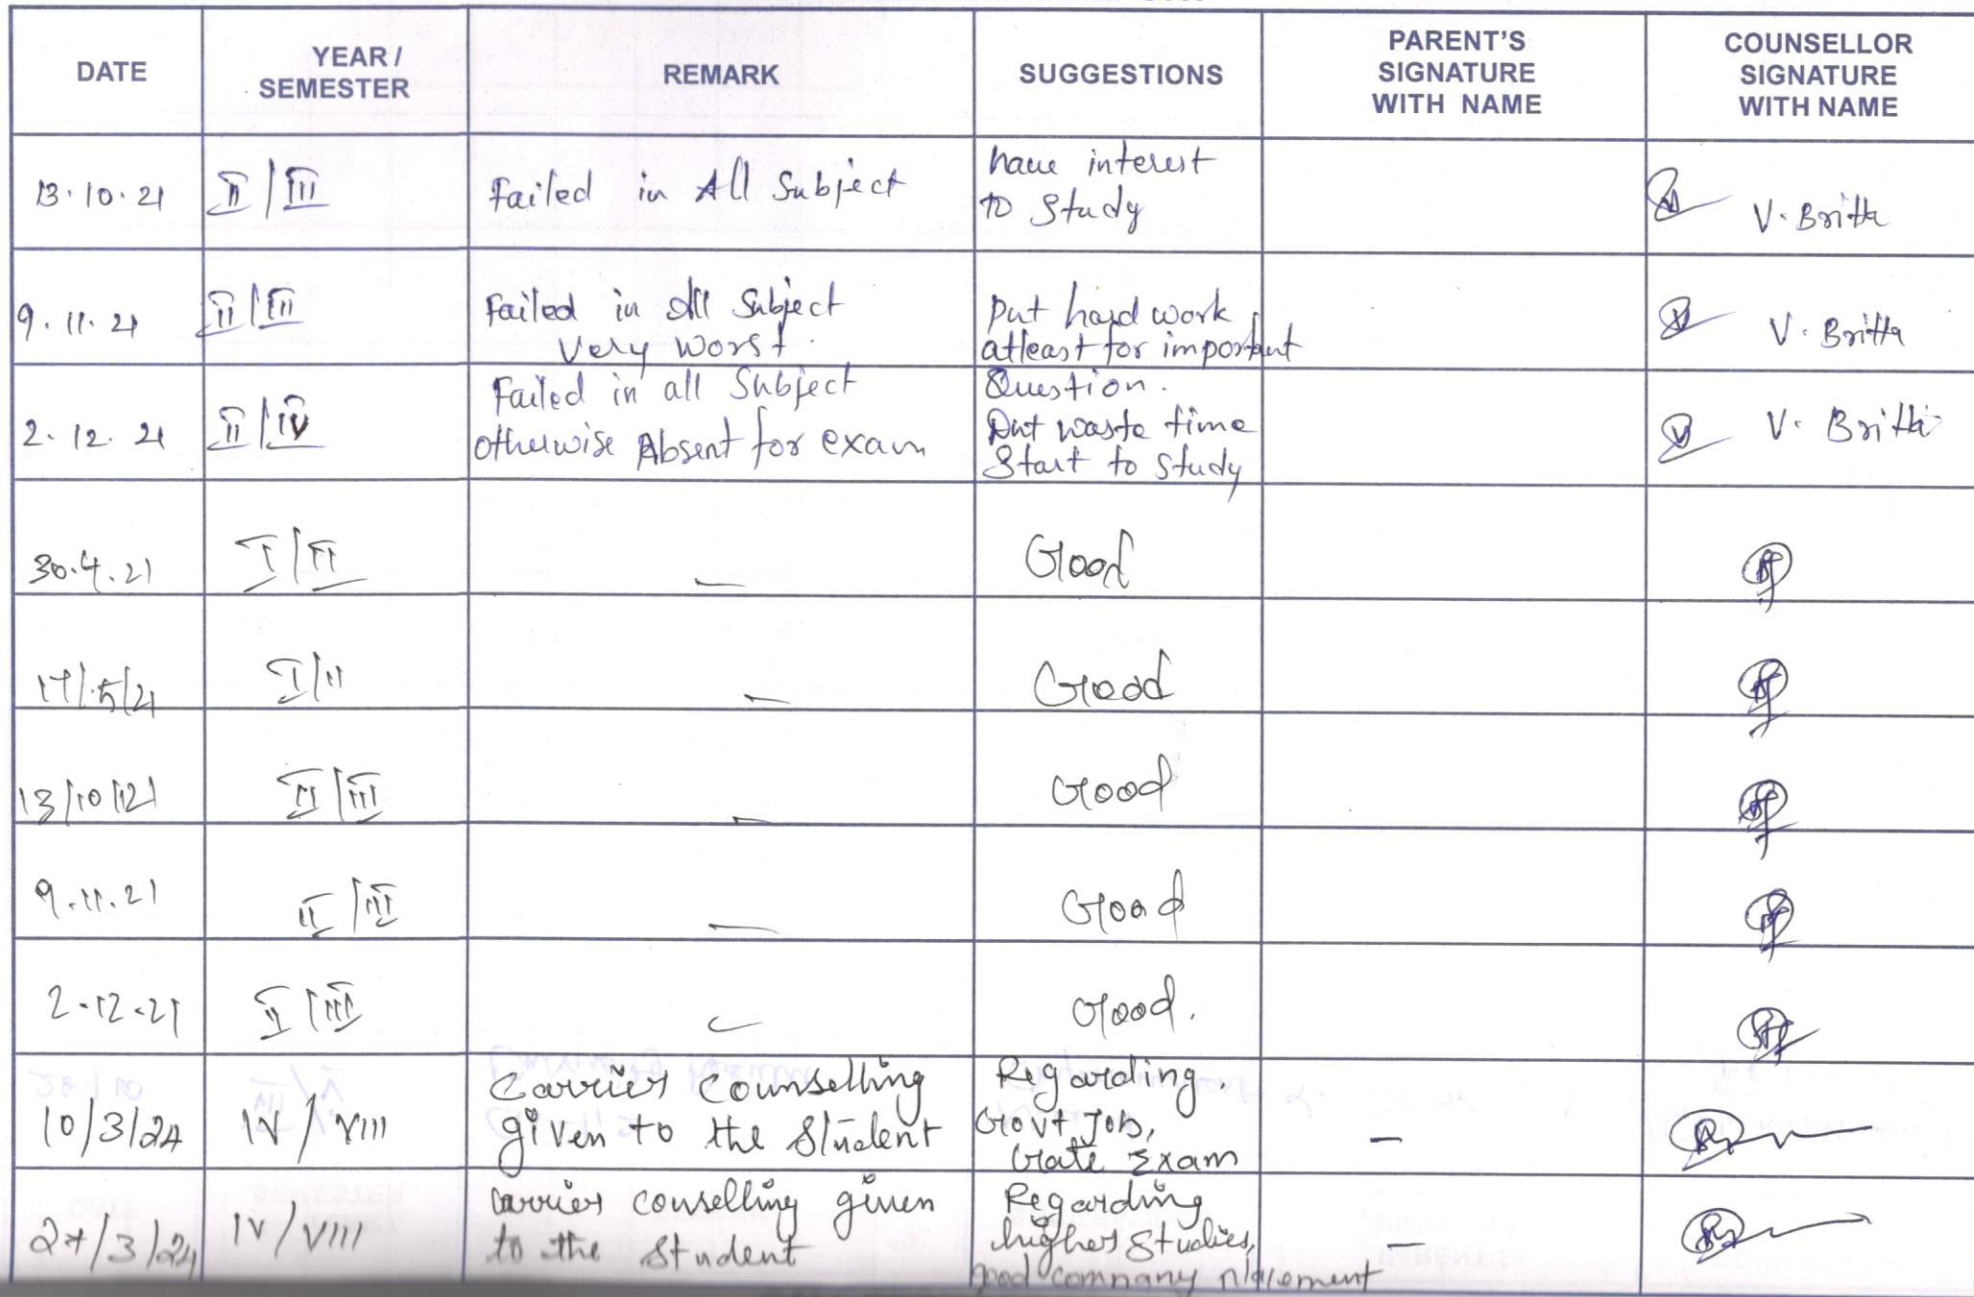 DATE
YEAR /
SEMESTER
REMARK
SUGGESTIONS
PARENT'S
SIGNATURE
WITH NAME
COUNSELLOR
SIGNATURE
WITH NAME
13.10.21
II/III
Failed in All Subject
have interest
to Study
V. Britta
9.11.21
II/III
Failed in All Subject
Very Worst.
Put hard work
atleast for important
Question.
V. Britta
2.12.21
II/IV
Failed in all Subject
otherwise Absent for exam
Dnt waste time
Start to study
V. Britta
30.4.21
I/II
—
Good
17/5/21
I/II
—
Good
13/10/21
II/III
—
Good
9.11.21
II/III
—
Good
2.12.21
II/III
—
Good.
10/3/24
IV/VIII
Carrier Counselling
given to the Student
Regarding.
Govt Job,
Gate Exam
—
27/3/24
IV/VIII
Carrier conselling given
to the Student
Regarding
higher Studies,
good company placement
—